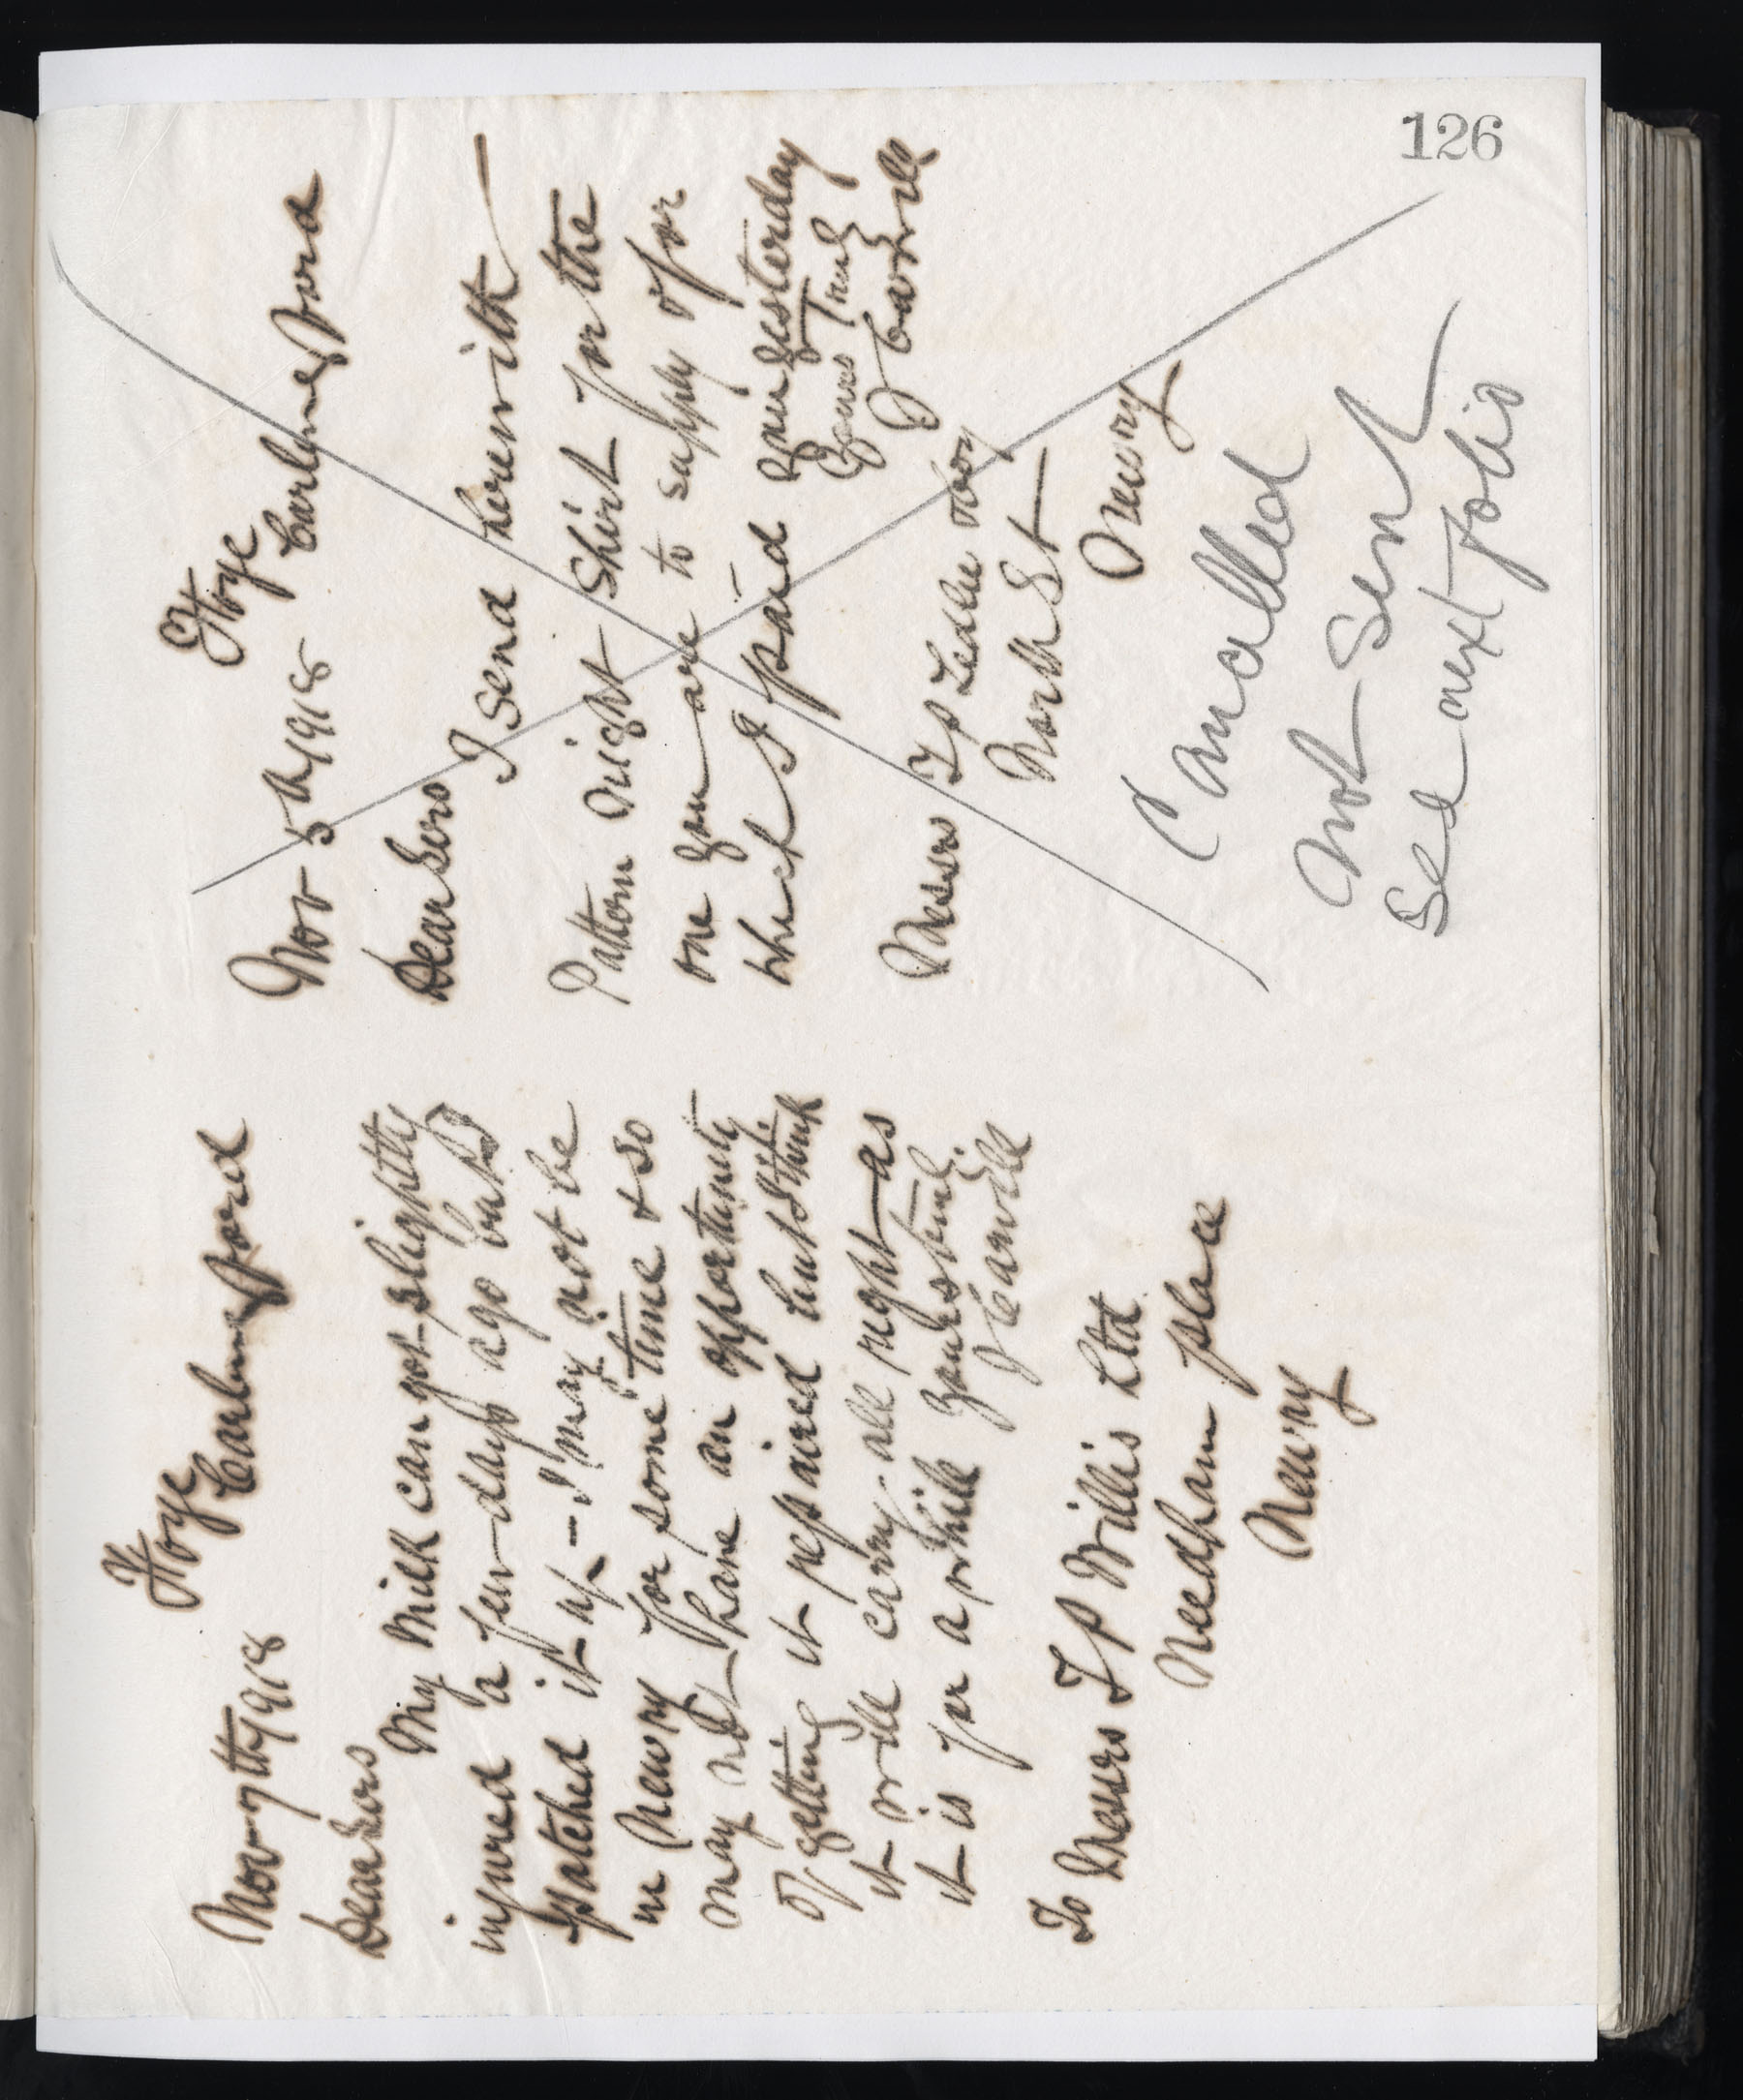 126
Foye
Carlingford
Nov 7th 1918
Dear Sirs
My Milk can got slightly
injured a few days ago but I
patched it up - I may not be
in Newry for some time & so
may not have an opportunity
of getting it repaired but I think
it will carry all right as
it is for a while Yours truly
J Carvill
To Messrs T P Willis Ltd
Needham place
Newry
Foye
Carlingford
Nov 5th 1918
Dear Sirs
I send herewith
Pattern Night Shirt for the
one you are to supply & for
which I paid you yesterday
Yours Truly
J Carvill
Messrs T P Leslie
North St
Newry
Cancelled
Not Sent
See next folio